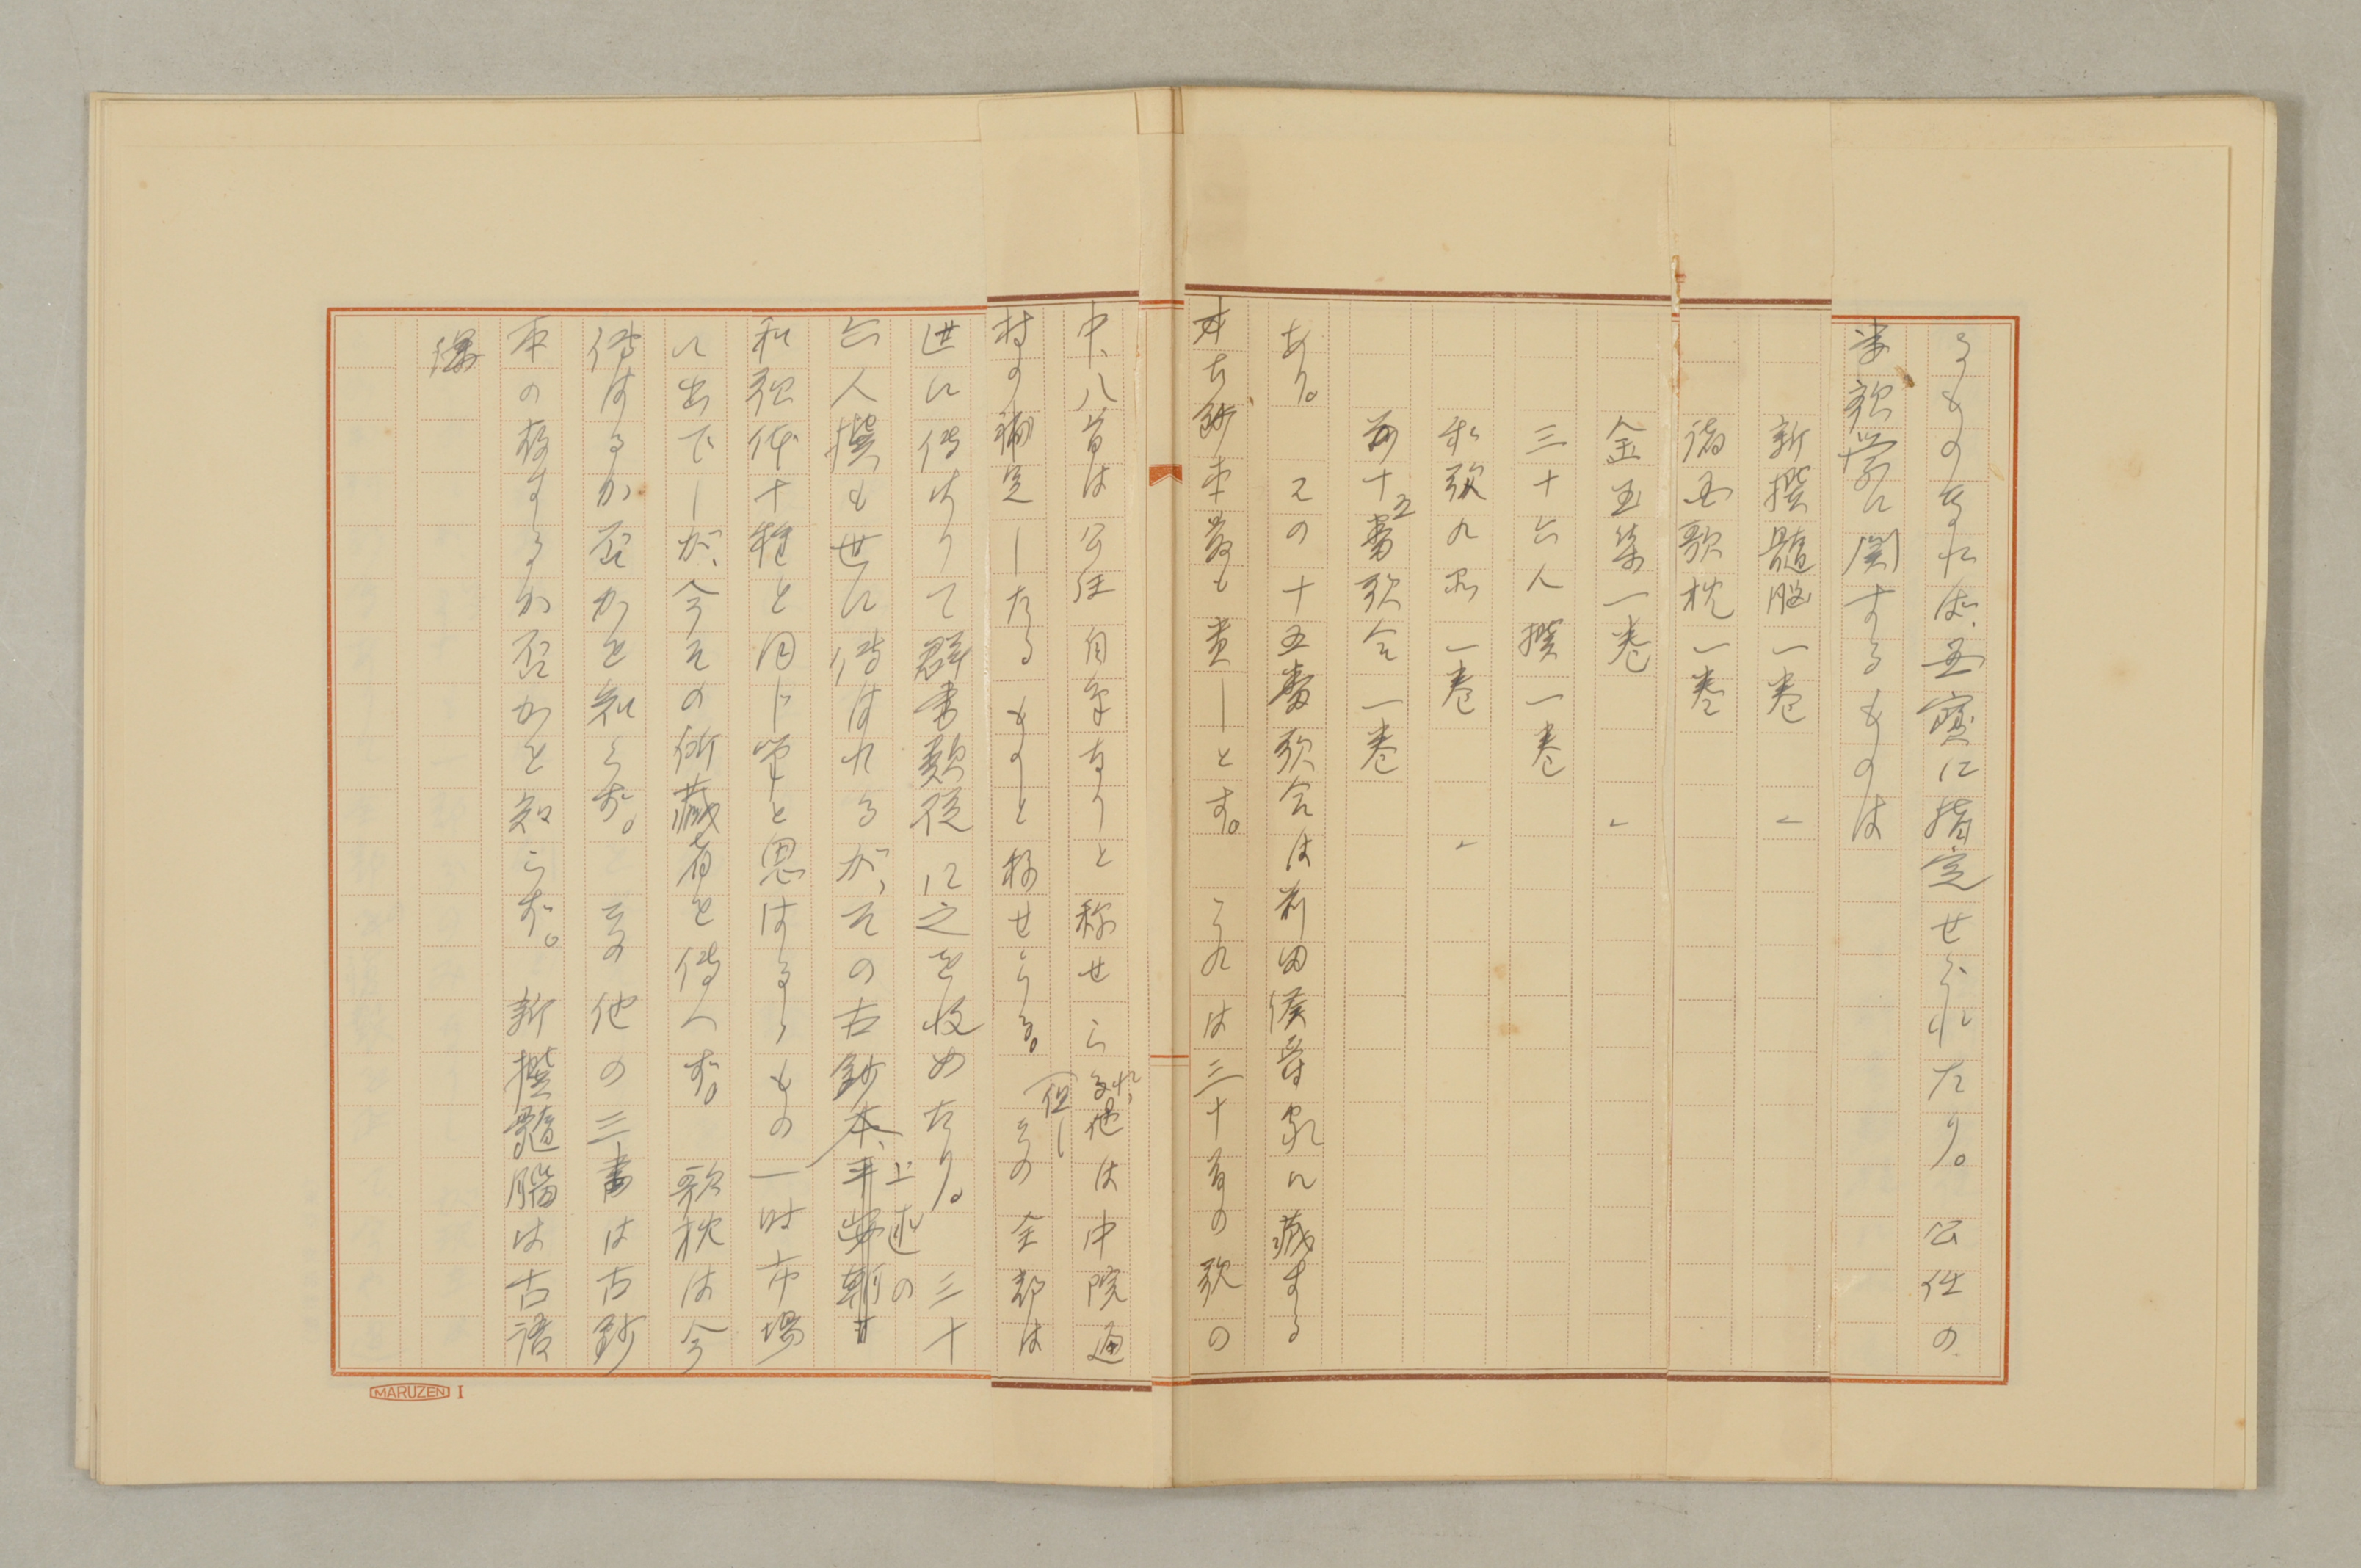 るものなれば、四寅に指定せられたり。 公任の
書歌学に関するものは
新撰髄脳一巻 〃
諸国歌枕一巻
金玉集一巻 〃
三十六人撰一巻
和歌九品一巻 〃
前十五番歌合一巻
あり。 この十五番歌合は前田侯爵家に蔵する
古鈔本最も貴しとす。 これは三十首の歌の
中、八首は公任自筆なりと称せられ、他は中院通
村の補足したるものと称せらる。 但しその全部は
世に傳はりて群書類従に之を收めたり。 三十
六人撰も世に傳はれるが、その古鈔本、上述の
和歌体十種と同じ筆と思はるゝもの一時市場
に出でしが、今その所藏者を傳へず。 歌枕は今
傳はるか否かを知らず。 その他の三書は古鈔
本の存するか否かを知らず。 新撰髓腦は古語
深
MARUZEN I